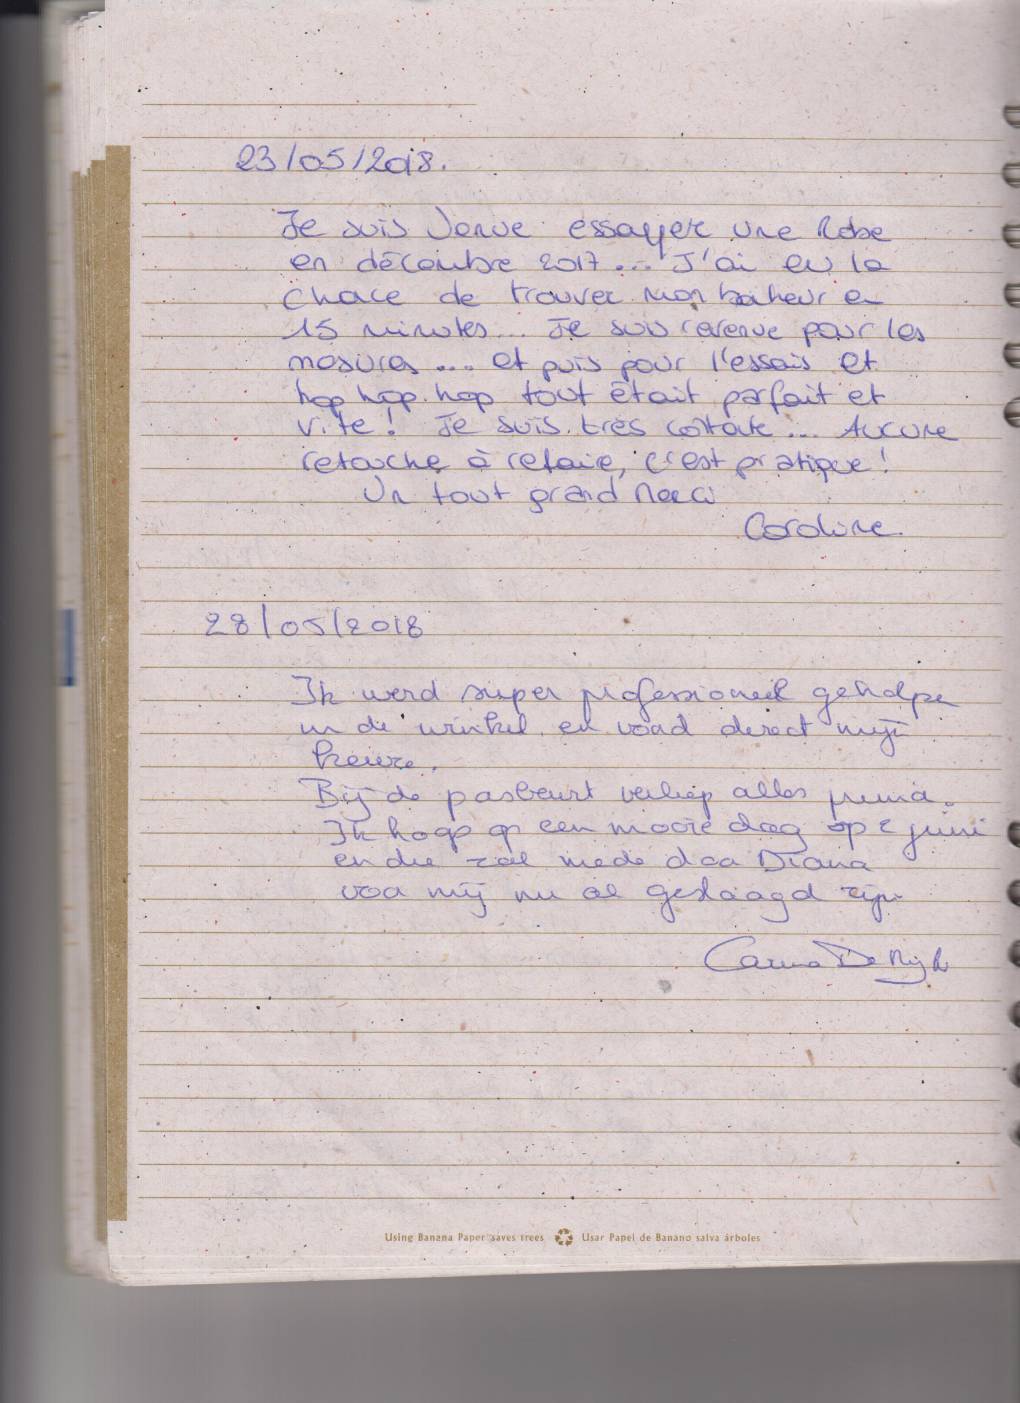 23/05/2018.
Je suis venue essayer une Robe
en décembre 2017... J'ai eu la
chace de trouver mon bonheur en
15 minutes... Je suis revenue pour les
mesures... et puis pour l'essais et
hop hop hop tout était parfait et
vite! Je suis très contente... Aucune
retouche à refaire, c'est pratique!
Un tout grand Merci
Caroline
28/05/2018
Ik werd super professioneel geholpen
in de winkel en vond direct mijn
keuze.
Bij de pasbeurt verliep alles prima.
Ik hoop op een mooie dag op 2 juni
en die zal mede door Diana
voor mij nu al geslaagd zijn
Carina De Rijck
Using Banana Paper saves trees Usar Papel de Banano salva árboles